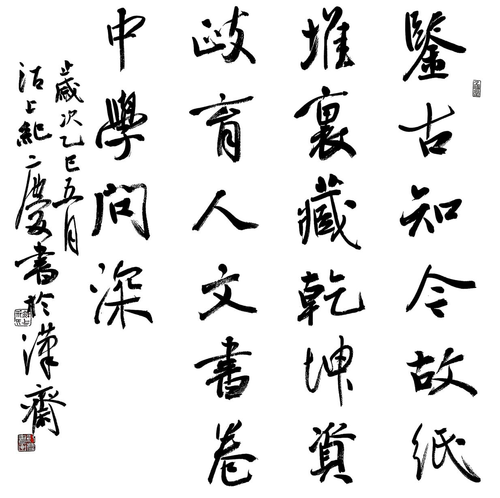 鑒古知今故紙
堆裏藏乾坤資
政育人文書卷
中學問深
歲次乙巳五月
沽上紀二慶書於漢齋